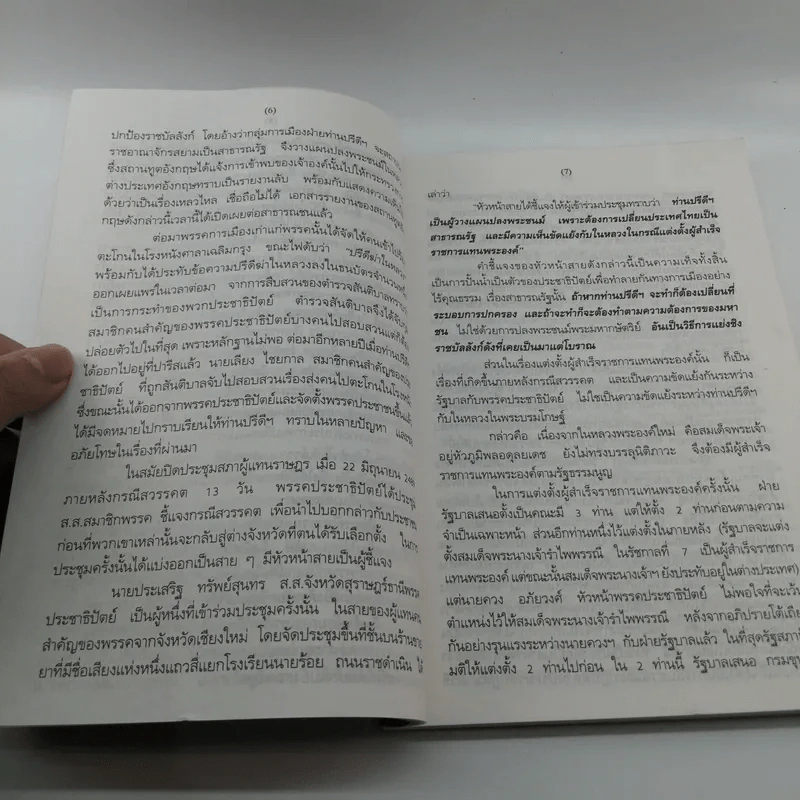 (6)
ปกป้องราชบัลลังก์ โดยอ้างว่ากลุ่มการเมืองฝ่ายท่านปรีดีฯ
ราชอาณาจักรสยามเป็นสาธารณรัฐ จึงวางแผนปลงพระชนม์
ซึ่งสถานทูตอังกฤษได้แจ้งการเข้าพบของเจ้าองค์นั้นไปให้กระทรวง
ต่างประเทศอังกฤษทราบเป็นรายงานลับ พร้อมกับแสดงความเห็น
ด้วยว่าเป็นเรื่องเหลวไหล เชื่อถือไม่ได้ เอกสารรายงานของสถานทูต
กฤษดังกล่าวนี้เวลานี้ได้เปิดเผยต่อสาธารณชนแล้ว
ต่อมาพรรคการเมืองเก่าแก่พรรคนั้นได้จัดให้คนเข้าไป
ตะโกนในโรงหนังศาลาเฉลิมกรุง ขณะไฟดับว่า "ปรีดีฆ่าในหลวง
พร้อมกับได้ประทับข้อความปรีดีฆ่าในหลวงลงในธนบัตร
ออกเผยแพร่ในเวลาต่อมา จากการสืบสวนของตำรวจสันติบาล
เป็นการกระทำของพวกประชาธิปัตย์ ตำรวจสันติบาลจึงได้
สมาชิกคนสำคัญของพรรคประชาธิปัตย์บางคนไปสอบสวน
ปล่อยตัวไปในที่สุด เพราะหลักฐานไม่พอ ต่อมาอีกหลายปีเมื่อท่านปรีดี
ได้ออกไปอยู่ที่ปารีสแล้ว นายเลียง ไชยกาล สมาชิกคนสำคัญของ
ชาธิปัตย์ ที่ถูกสันติบาลจับไปสอบสวนเรื่องส่งคนไปตะโกนในโรงหนัง
ซึ่งขณะนั้นได้ออกจากพรรคประชาธิปัตย์และจัดตั้งพรรคประชาชนขึ้น
ได้มีจดหมายไปกราบเรียนให้ท่านปรีดีฯ ทราบในหลายปัญหา และ
อภัยโทษในเรื่องที่ผ่านมา
ในสมัยปิดประชุมสภาผู้แทนราษฎร เมื่อ 22 มิถุนายน
ภายหลังกรณีสวรรคต 13 วัน พรรคประชาธิปัตย์ได้ประชุม
ส.ส.สมาชิกพรรค ชี้แจงกรณีสวรรคต เพื่อนำไปบอกกล่าวกับประชาชน
ก่อนที่พวกเขาเหล่านั้นจะกลับสู่ต่างจังหวัดที่ตนได้รับเลือกตั้ง ในการ
ประชุมครั้งนั้นได้แบ่งออกเป็นสาย ๆ มีหัวหน้าสายเป็นผู้ชี้แจง
นายประเสริฐ ทรัพย์สุนทร ส.ส.จังหวัดสุราษฎร์ธานี
ประชาธิปัตย์ เป็นผู้หนึ่งที่เข้าร่วมประชุมครั้งนั้น ในสายของผู้แทนคน
สำคัญของพรรคจากจังหวัดเชียงใหม่ โดยจัดประชุมขึ้นที่ชั้นบนร้านขาย
ยาที่มีชื่อเสียงแห่งหนึ่งแถวสี่แยกโรงเรียนนายร้อย ถนนราชดำเนิน ได้
(7)
เล่าว่า
"หัวหน้าสายได้ชี้แจงให้ผู้เข้าร่วมประชุมทราบว่า ท่านปรีดีฯ
เป็นผู้วางแผนปลงพระชนม์ เพราะต้องการเปลี่ยนประเทศไทยเป็น
สาธารณรัฐ และมีความเห็นขัดแย้งกับในหลวงในกรณีแต่งตั้งผู้สำเร็จ
ราชการแทนพระองค์"
คำชี้แจงของหัวหน้าสายดังกล่าวนี้เป็นความเท็จทั้งสิ้น
เป็นการปั้นน้ำเป็นตัวของประชาธิปัตย์เพื่อทำลายกันทางการเมืองอย่าง
ไร้คุณธรรม เรื่องสาธารณรัฐนั้น ถ้าหากท่านปรีดีฯ จะทำก็ต้องเปลี่ยนที่
ระบอบการปกครอง และถ้าจะทำก็จะต้องทำตามความต้องการของมหา
ชน ไม่ใช่ด้วยการปลงพระชนม์พระมหากษัตริย์ อันเป็นวิธีการแย่งชิง
ราชบัลลังก์ดังที่เคยเป็นมาแต่โบราณ
ส่วนในเรื่องแต่งตั้งผู้สำเร็จราชการแทนพระองค์นั้น ก็เป็น
เรื่องที่เกิดขึ้นภายหลังกรณีสวรรคต และเป็นความขัดแย้งกันระหว่าง
รัฐบาลกับพรรคประชาธิปัตย์ ไม่ใช่เป็นความขัดแย้งระหว่างท่านปรีดีฯ
กับในหลวงในพระบรมโกษฐ์
กล่าวคือ เนื่องจากในหลวงพระองค์ใหม่ คือสมเด็จพระเจ้า
อยู่หัวภูมิพลอดุลยเดช ยังไม่ทรงบรรลุนิติภาวะ จึงต้องมีผู้สำเร็จ
ราชการแทนพระองค์ตามรัฐธรรมนูญ
ในการแต่งตั้งผู้สำเร็จราชการแทนพระองค์ครั้งนั้น ฝ่าย
รัฐบาลเสนอตั้งเป็นคณะมี 3 ท่าน แต่ให้ตั้ง 2 ท่านก่อนตามความ
จำเป็นเฉพาะหน้า ส่วนอีกท่านหนึ่งไว้แต่งตั้งในภายหลัง (รัฐบาลจะแต่ง
ตั้งสมเด็จพระนางเจ้ารำไพพรรณี ในรัชกาลที่ 7 เป็นผู้สำเร็จราชการ
แทนพระองค์ แต่ขณะนั้นสมเด็จพระนางเจ้าฯ ยังประทับอยู่ในต่างประเทศ)
แต่นายควง อภัยวงศ์ หัวหน้าพรรคประชาธิปัตย์ ไม่พอใจที่จะเว้น
ตำแหน่งไว้ให้สมเด็จพระนางเจ้ารำไพพรรณี หลังจากอภิปรายโต้เถียง
กันอย่างรุนแรงระหว่างนายควงฯ กับฝ่ายรัฐบาลแล้ว ในที่สุดรัฐสภา
มติให้แต่งตั้ง 2 ท่านไปก่อน ใน 2 ท่านนี้ รัฐบาลเสนอ กรมขุน